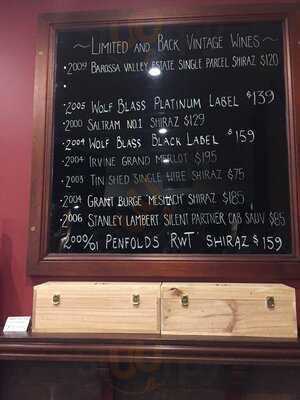 ~ LIMITED AND BACK VINTAGE WINES ~
• 2009 BAROSSA VALLEY ESTATE SINGLE PARCEL SHIRAZ $120
•
• 2005 WOLF BLASS PLATINUM LABEL $139
• 2000 SALTRAM NO.1 SHIRAZ $129
• 2004 WOLF BLASS BLACK LABEL $159
• 2004 IRVINE GRAND MERLOT $195
• 2003 TIN SHED SINGLE WIRE SHIRAZ $75
• 2004 GRANT BURGE MESHACH SHIRAZ $185
• 2006 STANLEY LAMBERT SILENT PARTNER CAB SAUV $85
PENFOLDS 'RWT' SHIRAZ $159